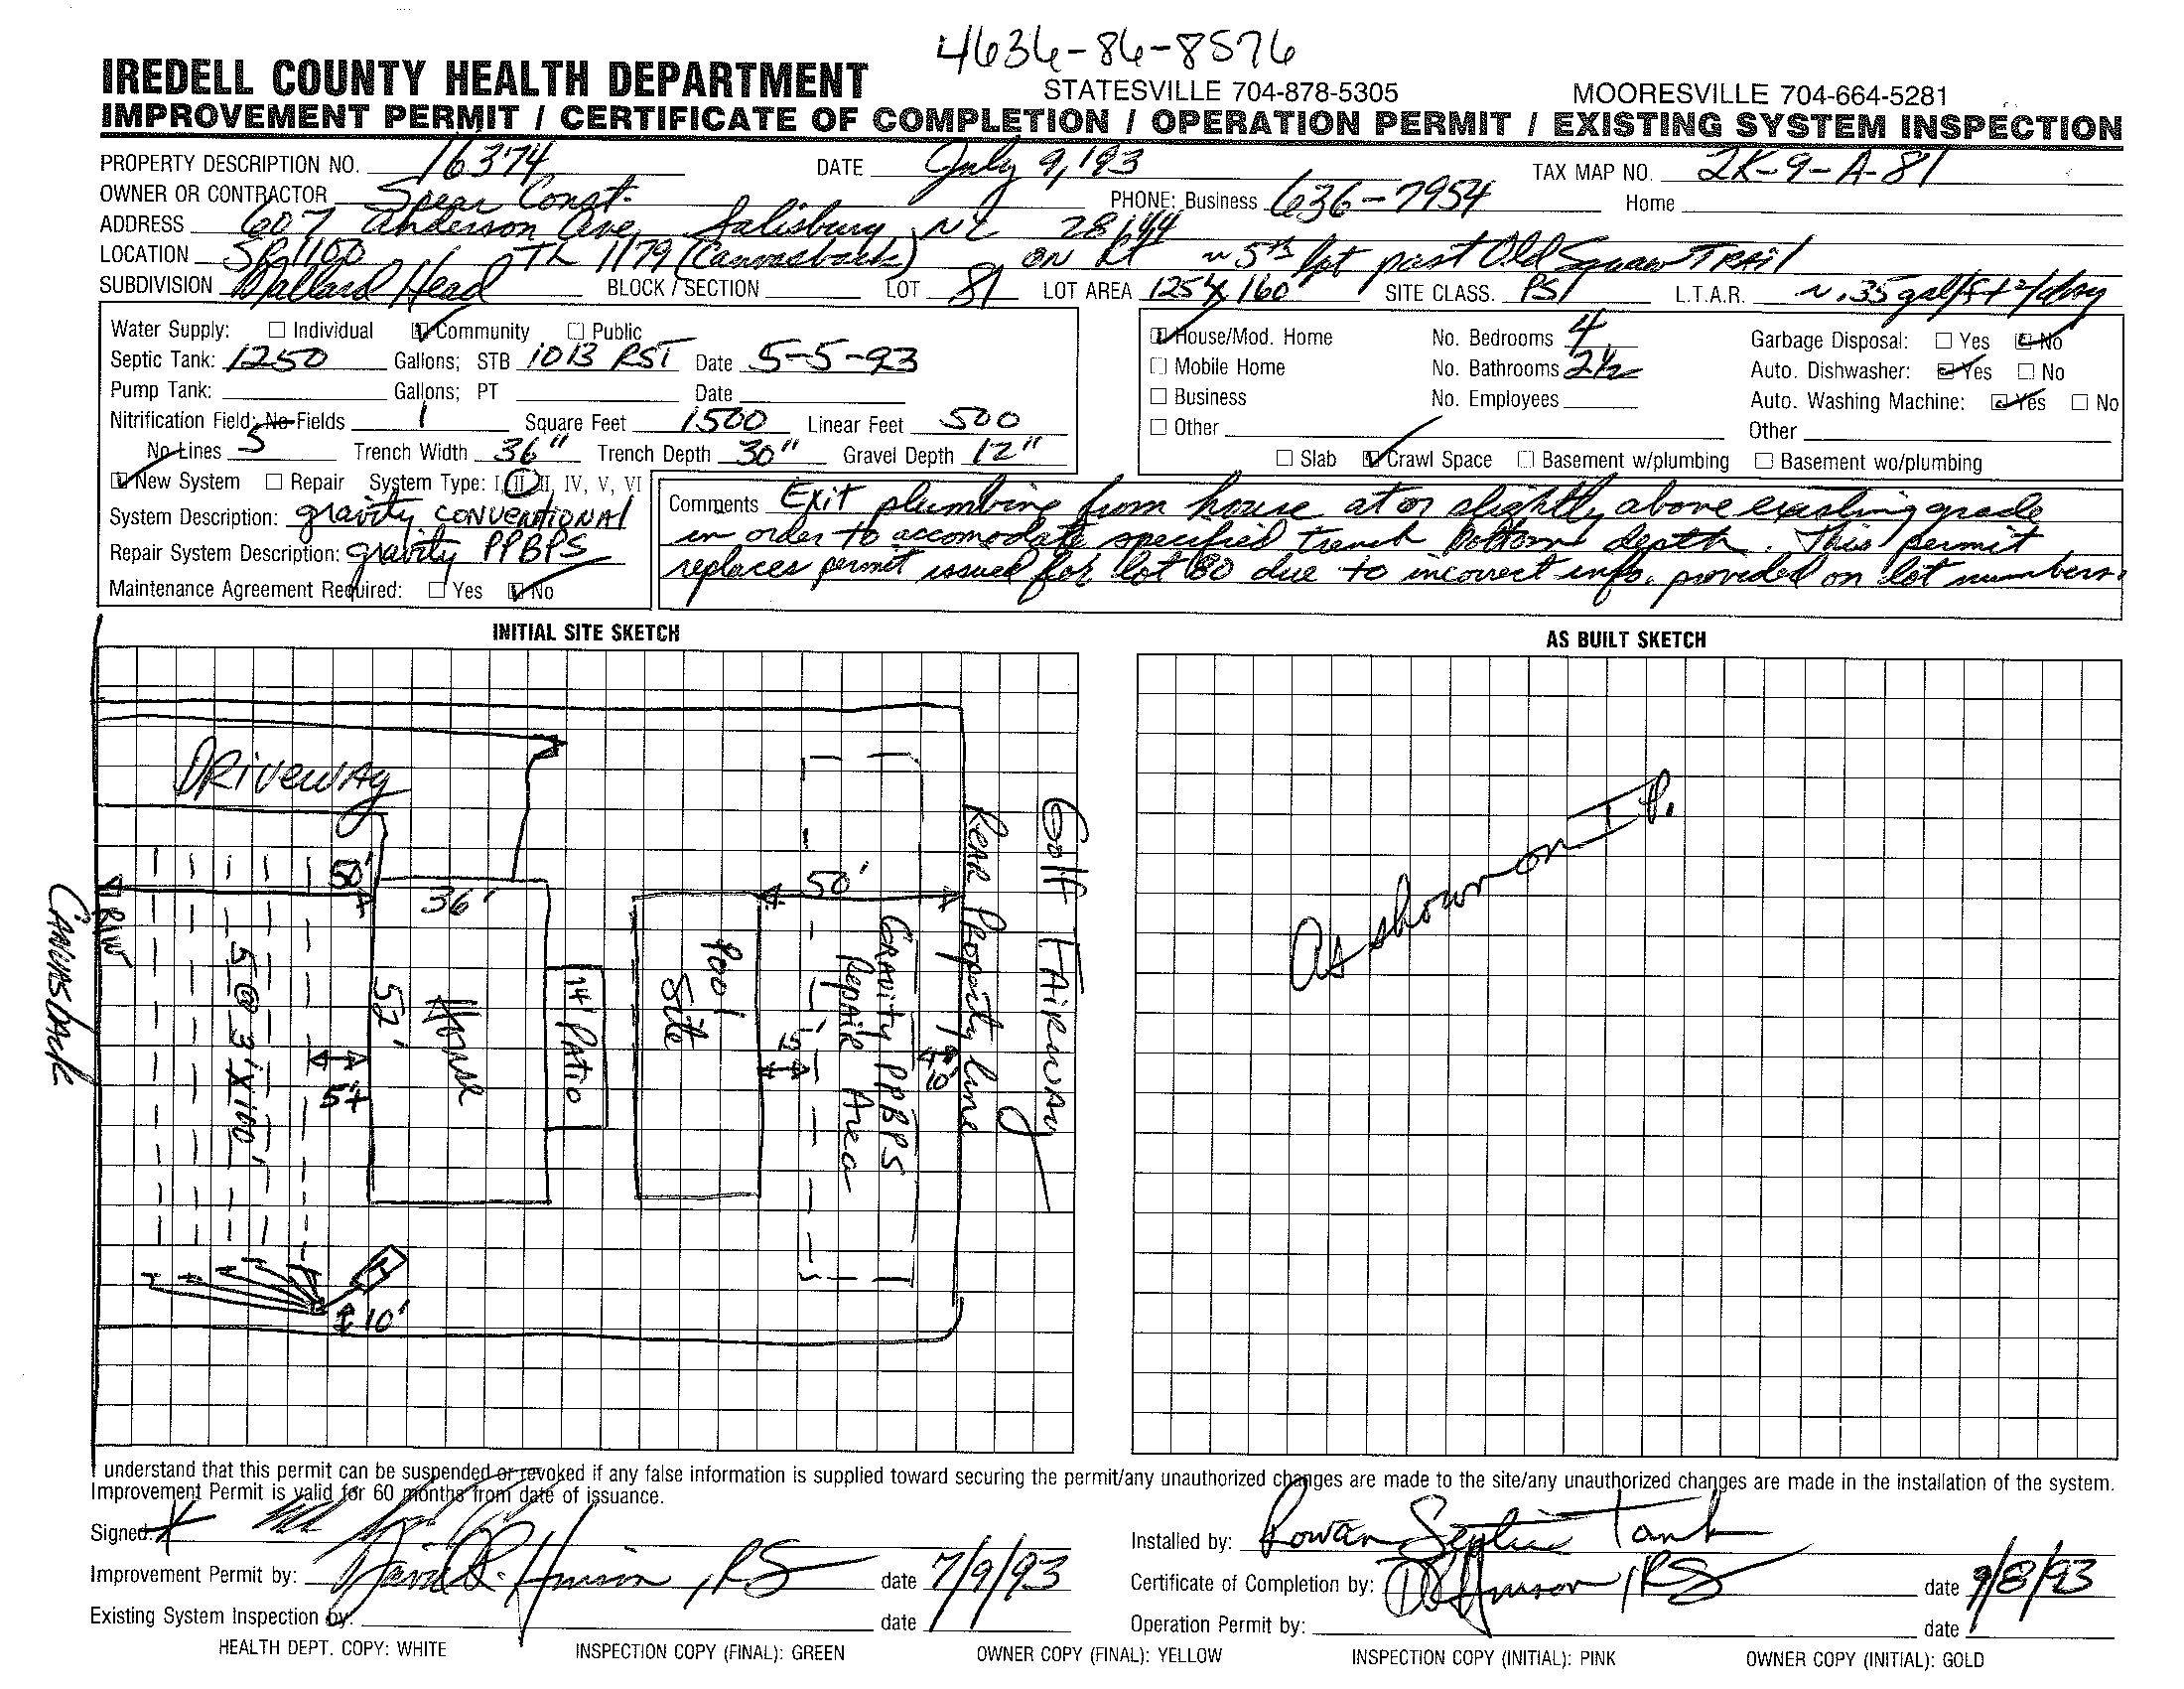 4636-86-8576
IREDELL COUNTY HEALTH DEPARTMENT STATESVILLE 704-878-5305 MOORESVILLE 704-664-5281
IMPROVEMENT PERMIT / CERTIFICATE OF COMPLETION / OPERATION PERMIT / EXISTING SYSTEM INSPECTION
PROPERTY DESCRIPTION NO. 16374 DATE July 9, '93 TAX MAP NO. 2K-9-A-81
OWNER OR CONTRACTOR Spear Const. PHONE: Business 636-7954 Home
ADDRESS 607 Anderson Ave, Salisbury, NC 28144
LOCATION SR 1100 TL 1179 (Canvasback) on Rt ~ 5th lot past Old Squaw TRAil
SUBDIVISION Mallard Head BLOCK / SECTION LOT 81 LOT AREA 125 X 160 SITE CLASS. PS L.T.A.R. ~.35 gal/ft2/day
Water Supply: ☐ Individual ☑ Community ☐ Public
Septic Tank: 1250 Gallons; STB 1013 RST Date 5-5-93
Pump Tank: Gallons; PT Date
Nitrification Field: No Fields 1 Square Feet 1500 Linear Feet 500
No Lines 5 Trench Width 36" Trench Depth 30" Gravel Depth 12"
☑ House/Mod. Home No. Bedrooms 4 Garbage Disposal: ☐ Yes ☑ No
☐ Mobile Home No. Bathrooms 2½ Auto. Dishwasher: ☑ Yes ☐ No
☐ Business No. Employees Auto. Washing Machine: ☑ Yes ☐ No
☐ Other Other
☐ Slab ☑ Crawl Space ☐ Basement w/plumbing ☐ Basement wo/plumbing
☑ New System ☐ Repair System Type: I, II, III, IV, V, VI
System Description: gravity CONVENTIONAL
Repair System Description: gravity PPBPS
Maintenance Agreement Required: ☐ Yes ☑ No
Comments Exit plumbing from house at or slightly above existing grade
in order to accomodate specified trench bottom depth. This permit
replaces permit issued for lot 80 due to incorrect info. provided on lot numbers.
INITIAL SITE SKETCH
DRiveWAy
50'
36'
50'
R/W
CANVASbAck
5 @ 3' X 100'
52'
House
5'+
14' PATiO
Pool Site
15'
GRAVITY PPBPS
Repair Area
10'
REAR Property Line
Golf FAiRWAy
T
10'
AS BUILT SKETCH
As shown on I.P.
I understand that this permit can be suspended or revoked if any false information is supplied toward securing the permit/any unauthorized changes are made to the site/any unauthorized changes are made in the installation of the system.
Improvement Permit is valid for 60 months from date of issuance.
Signed: X
Installed by: Rowan Septic Tank
Improvement Permit by: , RS date 7/9/93
Certificate of Completion by: , RS date 9/8/93
Existing System Inspection by: date
Operation Permit by: date
HEALTH DEPT. COPY: WHITE INSPECTION COPY (FINAL): GREEN OWNER COPY (FINAL): YELLOW INSPECTION COPY (INITIAL): PINK OWNER COPY (INITIAL): GOLD